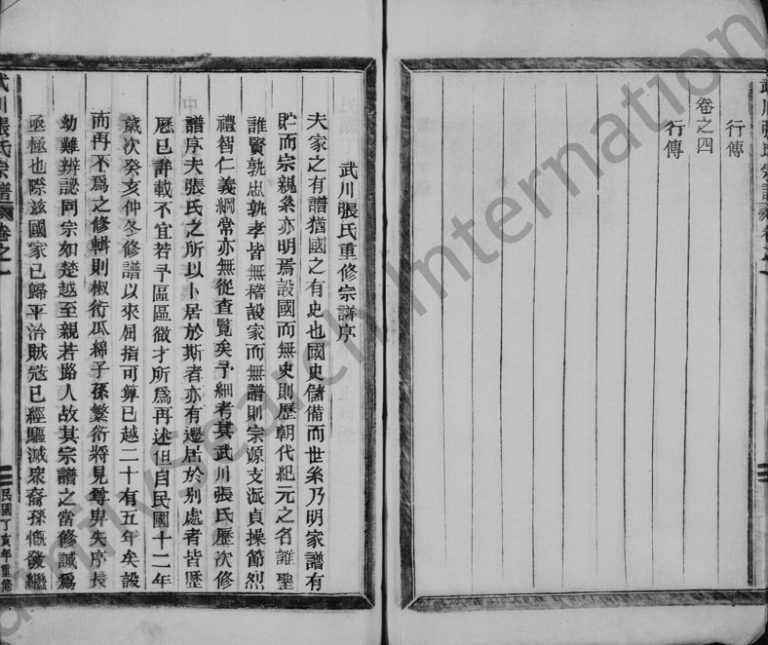 武川張氏宗譜 卷之一
行傳
卷之四
行傳
武川張氏重修宗譜序
夫家之有譜猶國之有史也國史儲備而世系乃明家譜有
貯而宗親系亦明焉設國而無史則歷朝代紀元之名誰聖
誰賢孰忠孰孝皆無稽設家而無譜則宗源支派貞操節烈
禮智仁義綱常亦無從查覽矣予細考其武川張氏歷次修
譜序夫張氏之所以卜居於斯者亦有遷居於別處者皆歷
歷已詳載不宜若予區區微才所為再述但自民國十二年
歲次癸亥仲冬修譜以來屈指可算已越二十有五年矣設
而再不為之修輯則椒衍瓜綿子孫繁衍將見尊卑失序長
幼難辨認同宗如楚越至親若路人故其宗譜之當修誠為
亟極也際茲國家已歸平治賊寇已經驅滅眾裔孫慨發繼
武川張氏宗譜 卷之一
民國丁亥年重修
FamilySearch International